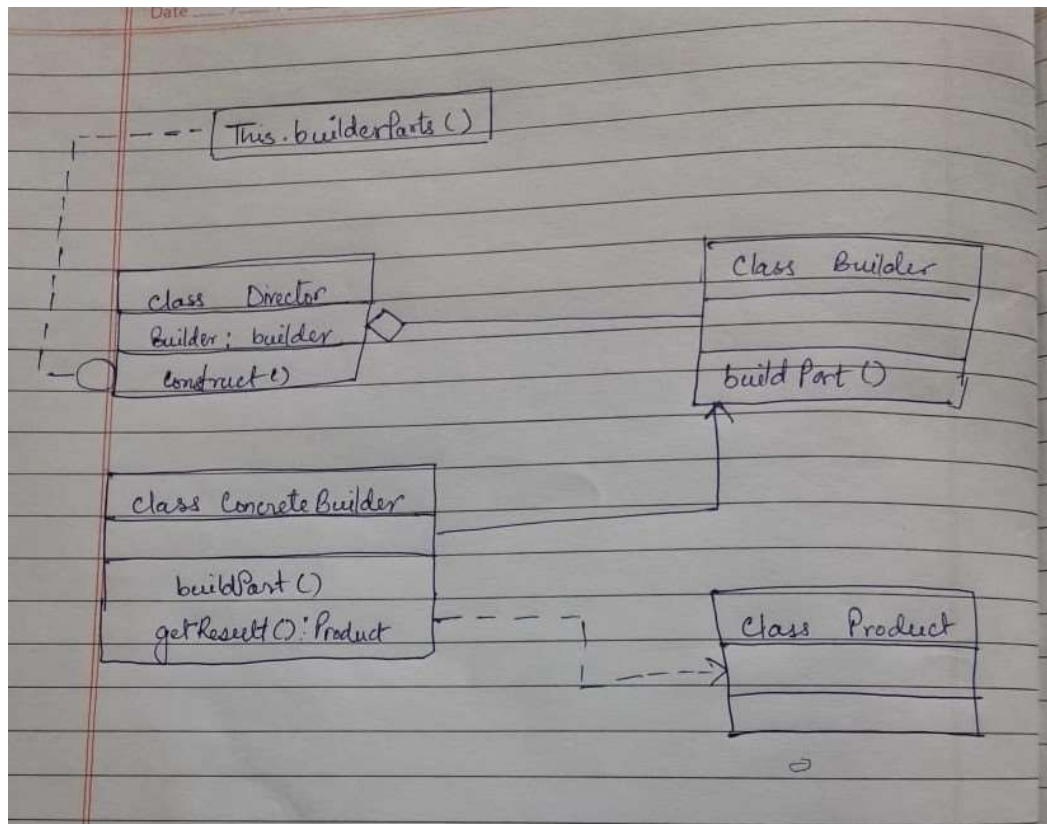 Date
This.builderParts()
class Director
Builder: builder
Construct()
Class Builder
build Part ()
class ConcreteBuilder
buildPart ()
getResult(): Product
Class Product